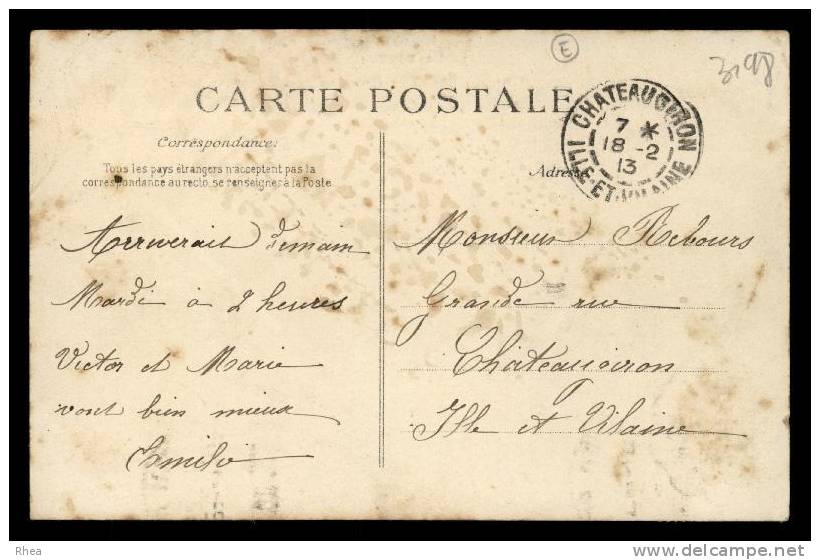 E
3,98
CARTE POSTALE
CHATEAUGIRON
7 *
18 -2
13
ILLE-ET-VILAINE
Correspondance:
Tous les pays étrangers n'acceptent pas la
correspondance au recto, se renseigner à la Poste
Adresse
Arriverait demain
Mardi à 2 heures
Victor et Marie
vont bien mieux
Emile
Monsieur Rebours
Grande rue
Chateaugiron
Ille et Vilaine
Rhea
delcampe.net